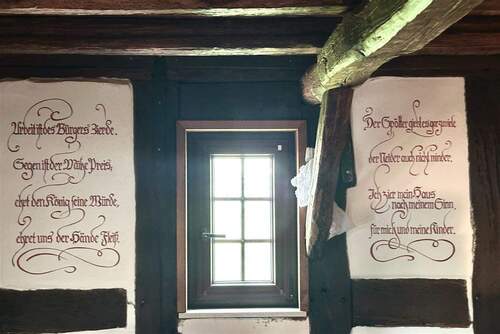 Arbeit ist des Bürgers Zierde,
Segen ist der Mühe Preis,
ehrt den König seine Würde,
ehret uns der Hände Fleiß.
Der Spötter giebt es gar zu viele
der Neider auch nicht minder,
Ich zier mein Haus
nach meinem Sinn
für mich und meine Kinder.